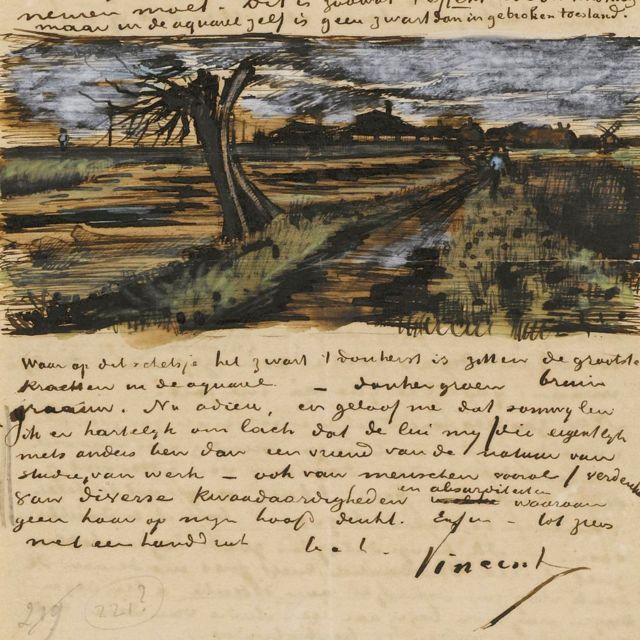 nemen moet. Dit is
maar in de aquarel zelf is geen zwart dan in gebroken toestand.
Waar op dit schetsje het zwart 't donkerst is zitten de grootste
krachten in de aquarel — donker groen bruin
graauw. Nu adieu, en geloof me dat somwylen
ik er hartelyk om lach dat de lui my /die eigentlyk
niets anders ben dan een vriend van de natuur van
studie, van werk — ook van menschen vooral / verdenk
van diverse kwaadaardigheden en absurditeiten waaraan
geen haar op myn hoofd denkt. Enfin — tot ziens
met een handdruk t. à t. Vincent
219 221?